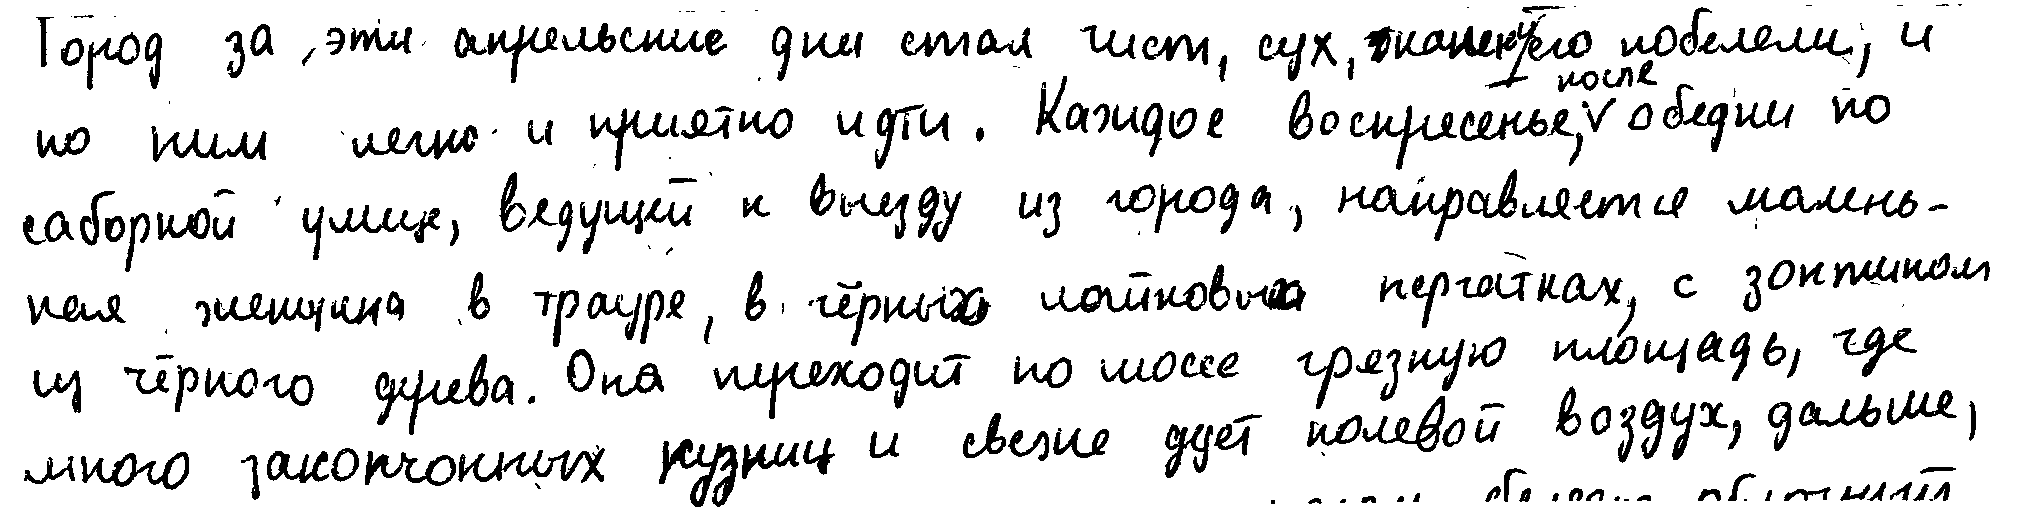 Город за эти апрельские дни стал чист, сух, камни его побелели, и
по ним легко и приятно идти. Каждое воскресенье, после обедни по
саборной улице, ведущей к выезду из города, направляется малень-
кая женщина в трауре, в чёрных лайковых перчатках, с зонтиком
из чёрного дерева. Она переходит по шоссе грязную площадь, где
много закопчонных кузниц и свежие дует полевой воздух, дальше,